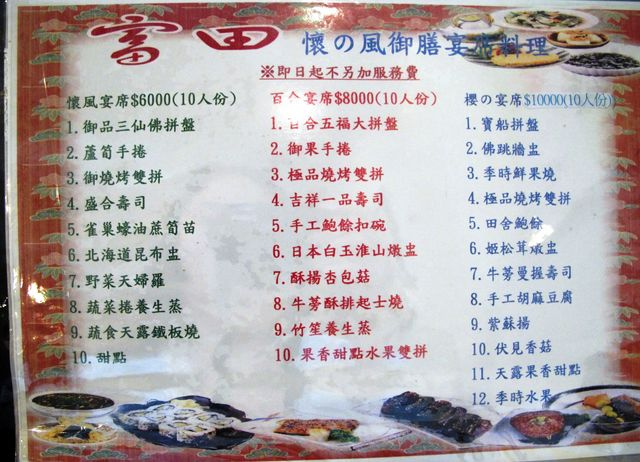 富田 懷の風御膳宴席料理
※即日起不另加服務費
懷風宴席$6000(10人份)
1. 御品三仙佛拼盤
2. 蘆筍手捲
3. 御燒烤雙拼
4. 盛合壽司
5. 雀巢蠔油蔴筍苗
6. 北海道昆布盅
7. 野菜天婦羅
8. 蔬菜捲養生蒸
9. 蔬食天露鐵板燒
10. 甜點
百合宴席$8000(10人份)
1. 百合五福大拼盤
2. 御果手捲
3. 極品燒烤雙拼
4. 吉祥一品壽司
5. 手工鮑餘扣碗
6. 日本白玉淮山燉盅
7. 酥揚杏包菇
8. 牛蒡酥排起士燒
9. 竹笙養生蒸
10. 果香甜點水果雙拼
櫻の宴席$10000(10人份)
1. 寶船拼盤
2. 佛跳牆盅
3. 季時鮮果燒
4. 極品燒烤雙拼
5. 田舍鮑餘
6. 姬松茸燉盅
7. 牛蒡曼握壽司
8. 手工胡麻豆腐
9. 紫蘇揚
10. 伏見香菇
11. 天露果香甜點
12. 季時水果